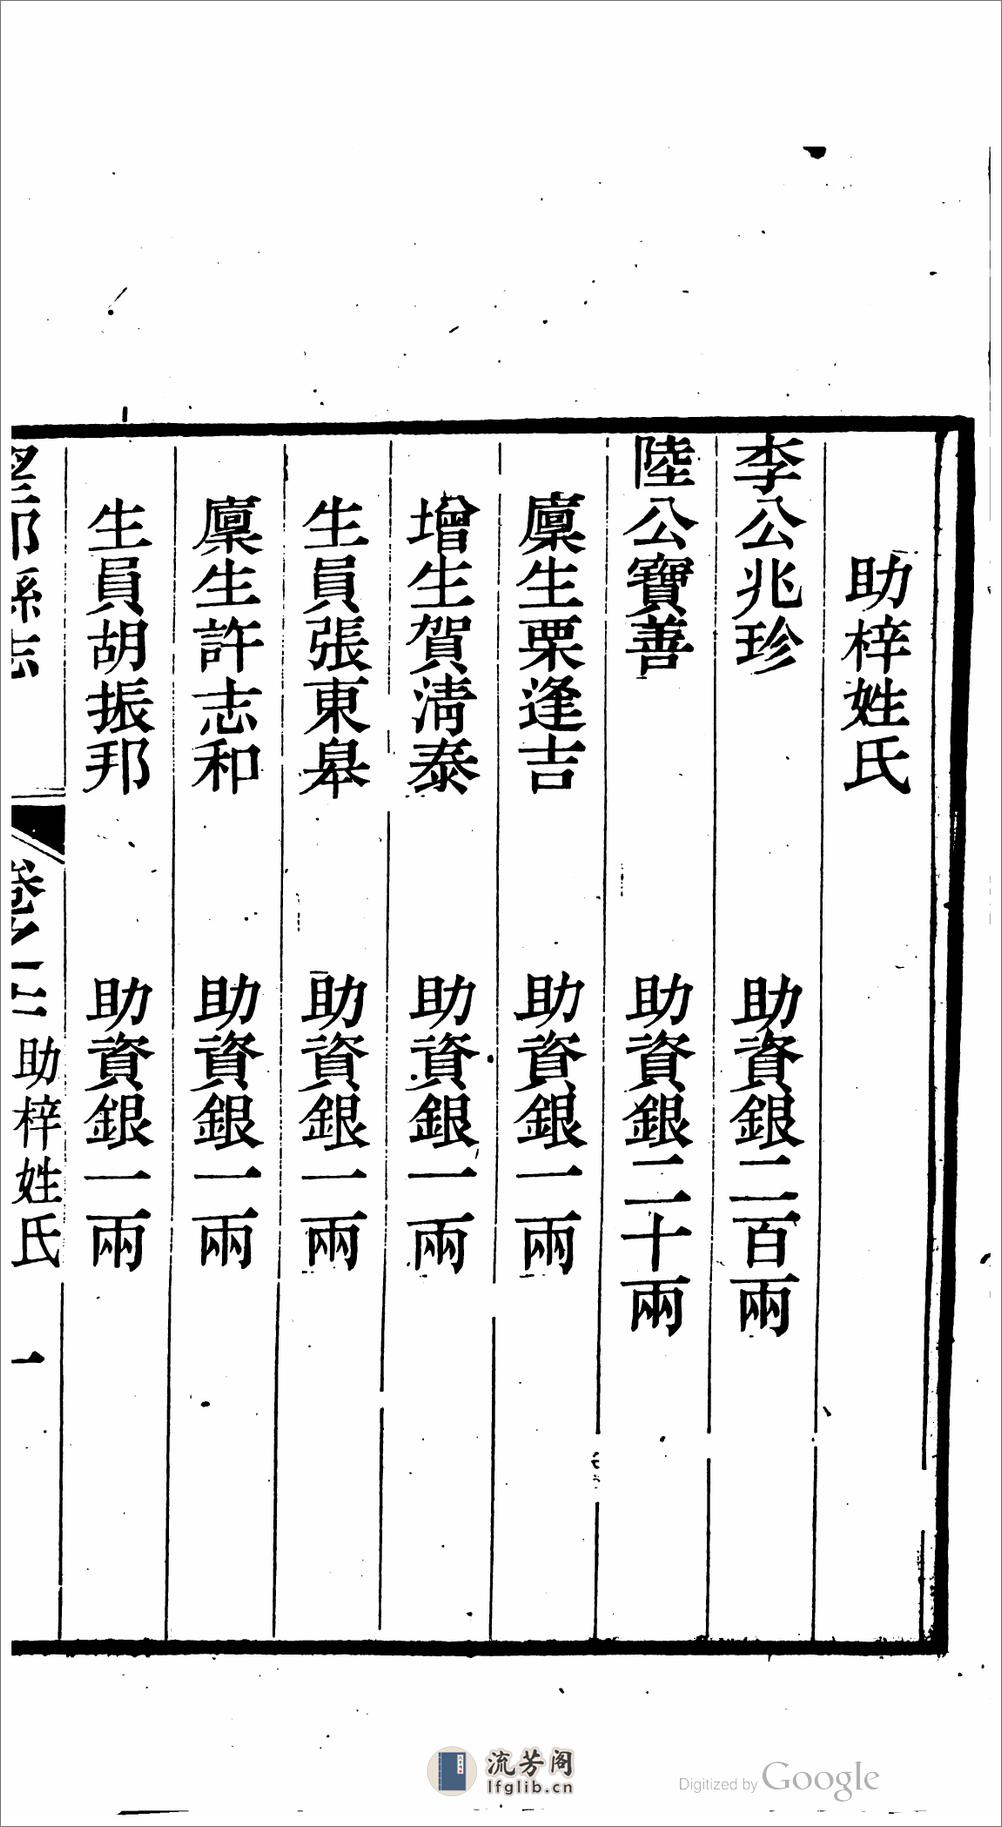 助梓姓氏
李公兆珍　助資銀二百兩
陸公寶善　助資銀二十兩
廩生栗逢吉　助資銀一兩
增生賀淸泰　助資銀一兩
生員張東皋　助資銀一兩
廩生許志和　助資銀一兩
生員胡振邦　助資銀一兩
望邦縣志　卷　助梓姓氏　一
流芳阁
lfglib.cn
Digitized by Google